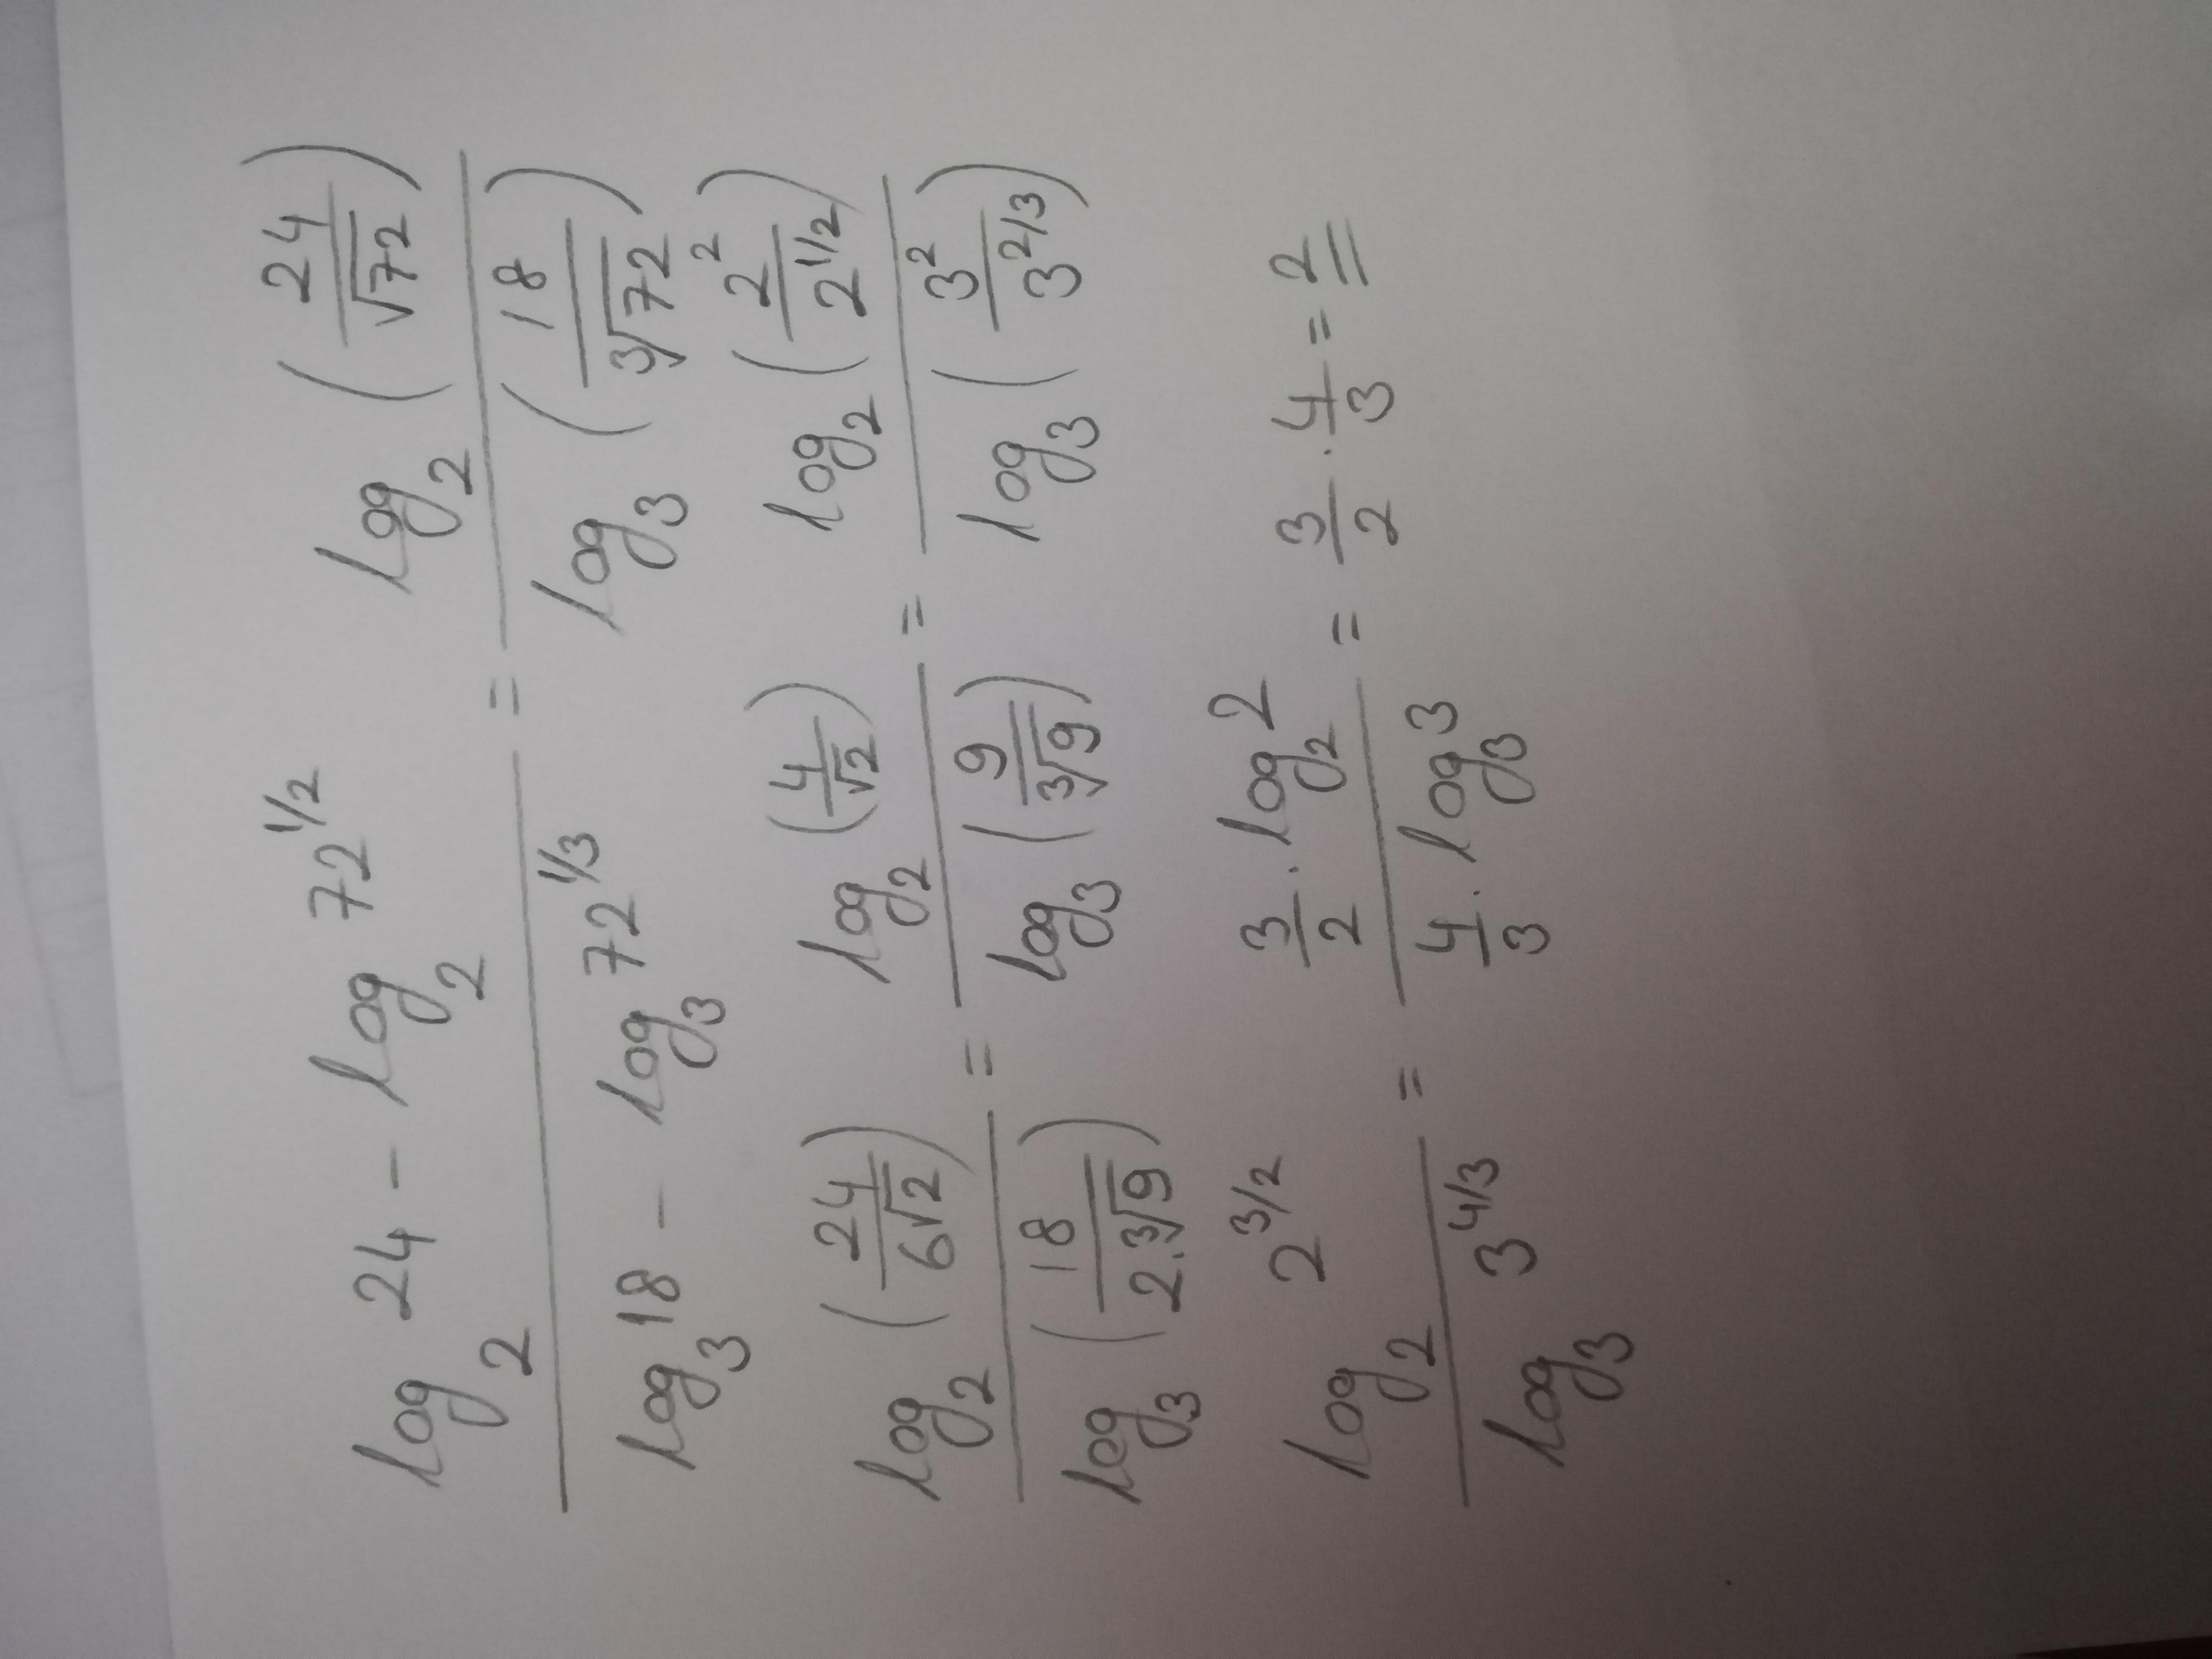 (log₂ 24 - log₂ 72^(1/2)) / (log₃ 18 - log₃ 72^(1/3)) = log₂ (24/√72) / log₃ (18/∛72)
log₂ (24/(6√2)) / log₃ (18/(2·∛9)) = log₂ (4/√2) / log₃ (9/∛9) = log₂ (2²/2^(1/2)) / log₃ (3²/3^(2/3))
log₂ 2^(3/2) / log₃ 3^(4/3) = (3/2 · log₂ 2) / (4/3 · log₃ 3) = 3/2 · 4/3 = 2